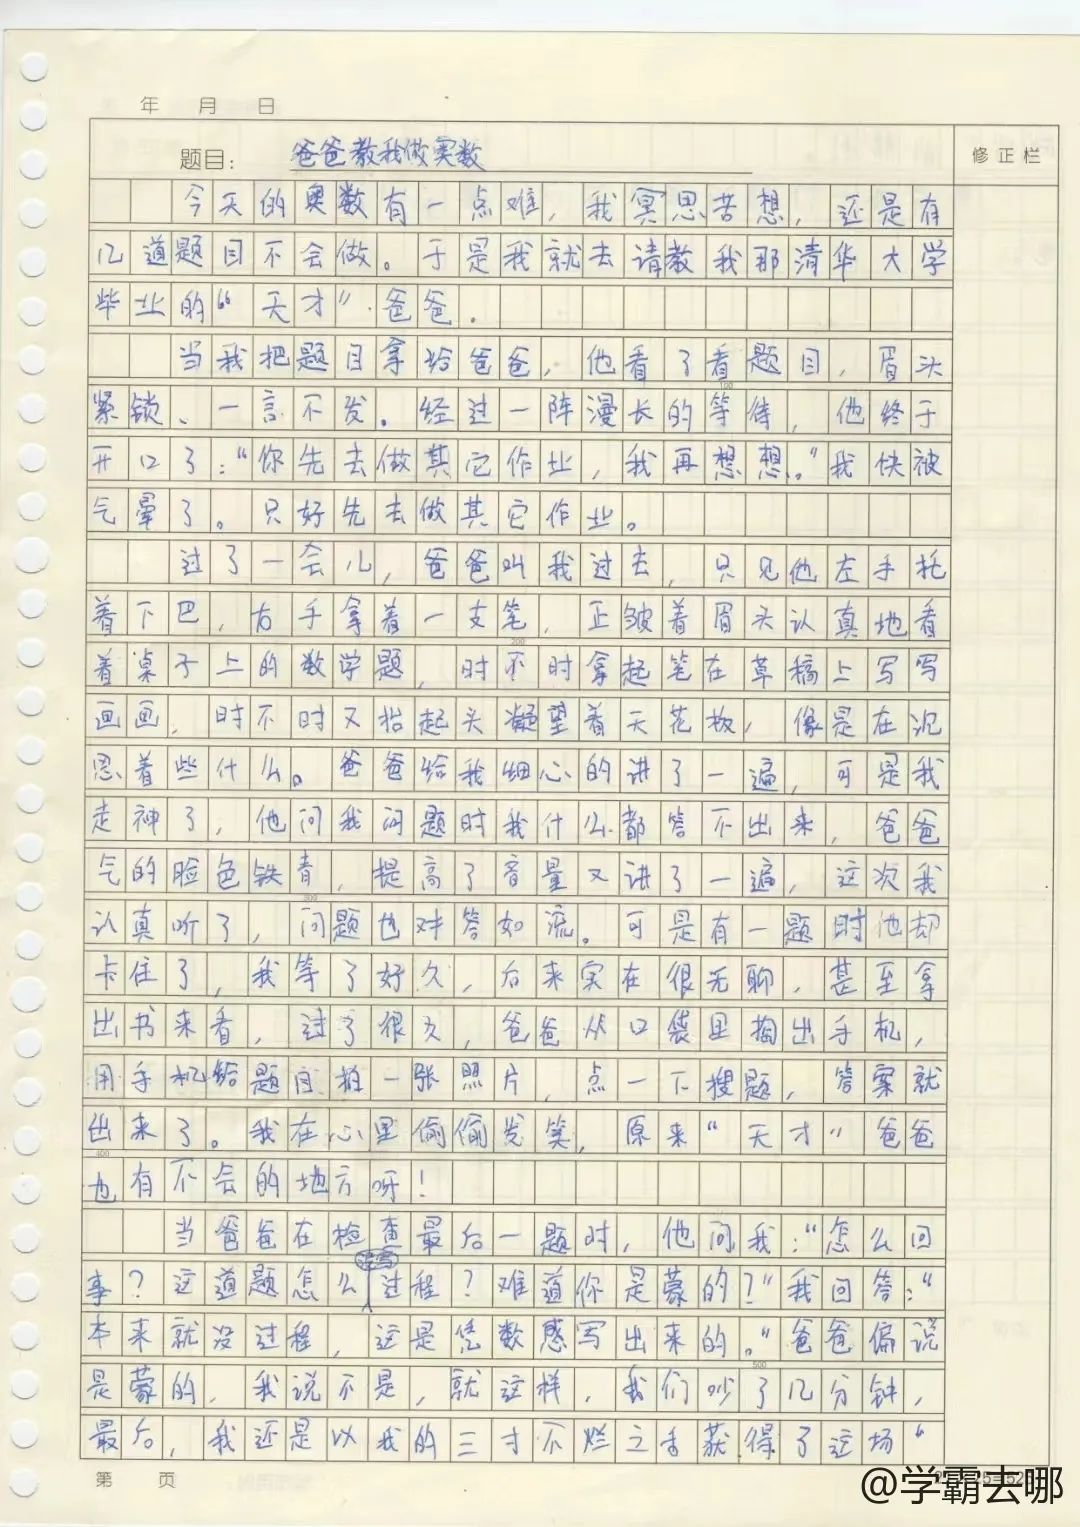 年 月 日
题目: 爸爸教我做奥数
修正栏
今天的奥数有一点难，我冥思苦想，还是有
几道题目不会做。于是我就去请教我那清华大学
毕业的“天才”爸爸。
当我把题目拿给爸爸，他看了看题目，眉头
紧锁、一言不发。经过一阵漫长的等待，他终于
100
开口了：“你先去做其它作业，我再想想。”我快被
气晕了。只好先去做其它作业。
过了一会儿，爸爸叫我过去，只见他左手托
着下巴，右手拿着一支笔，正皱着眉头认真地看
200
着桌子上的数学题，时不时拿起笔在草稿上写写
画画，时不时又抬起头凝望着天花板，像是在沉
思着些什么。爸爸给我细心的讲了一遍，可是我
走神了，他问我问题时我什么都答不出来，爸爸
气的脸色铁青，提高了音量又讲了一遍，这次我
300
认真听了，问题也对答如流。可是有一题时他却
卡住了，我等了好久，后来实在很无聊，甚至拿
出书来看，过了很久，爸爸从口袋里掏出手机，
用手机给题目拍一张照片，点一下搜题，答案就
出来了。我在心里偷偷发笑，原来“天才”爸爸
400
也有不会的地方呀！
当爸爸在检查最后一题时，他问我：“怎么回
事？这道题怎么没写过程？难道你是蒙的？”我回答：“
本来就没过程，这是凭数感写出来的。”爸爸偏说
500
是蒙的，我说不是，就这样，我们吵了几分钟，
最后，我还是以我的三寸不烂之舌获得了这场“
第 页
@学霸去哪